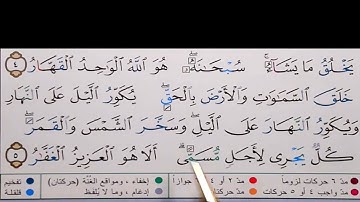 يَخْلُقُ مَا يَشَآءُ ۚ سُبْحَـٰنَهُۥ ۖ هُوَ ٱللَّهُ ٱلْوَٰحِدُ ٱلْقَهَّارُ ٤
خَلَقَ ٱلسَّمَـٰوَٰتِ وَٱلْأَرْضَ بِٱلْحَقِّ ۖ يُكَوِّرُ ٱلَّيْلَ عَلَى ٱلنَّهَارِ
وَيُكَوِّرُ ٱلنَّهَارَ عَلَى ٱلَّيْلِ ۖ وَسَخَّرَ ٱلشَّمْسَ وَٱلْقَمَرَ ۖ
كُلٌّ يَجْرِى لِأَجَلٍ مُّسَمًّى ۗ أَلَا هُوَ ٱلْعَزِيزُ ٱلْغَفَّـٰرُ ٥
مدّ ٦ حركات لزوماً مدّ ٢ أو ٤ أو ٦ جوازاً إخفاء، ومواقع الغُنَّة (حركتان) تفخيم
مدّ واجب ٤ أو ٥ حركات مدّ حركتان إدغام، وما لا يُلفَظ قلقلة